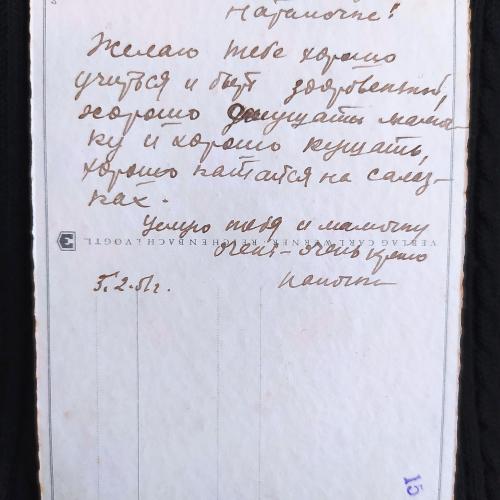 Наташочке!
Желаю тебе хорошо
учиться и быть здоровенькой,
хорошо слушать мамоч-
ку и хорошо кушать,
хорошо кататся на салаз-
ках.
Целую тебя и мамочку
очень-очень крепко
5.2.51г. папочка
VERLAG CARL WERNER · REICHENBACH I. VOGTL.
15